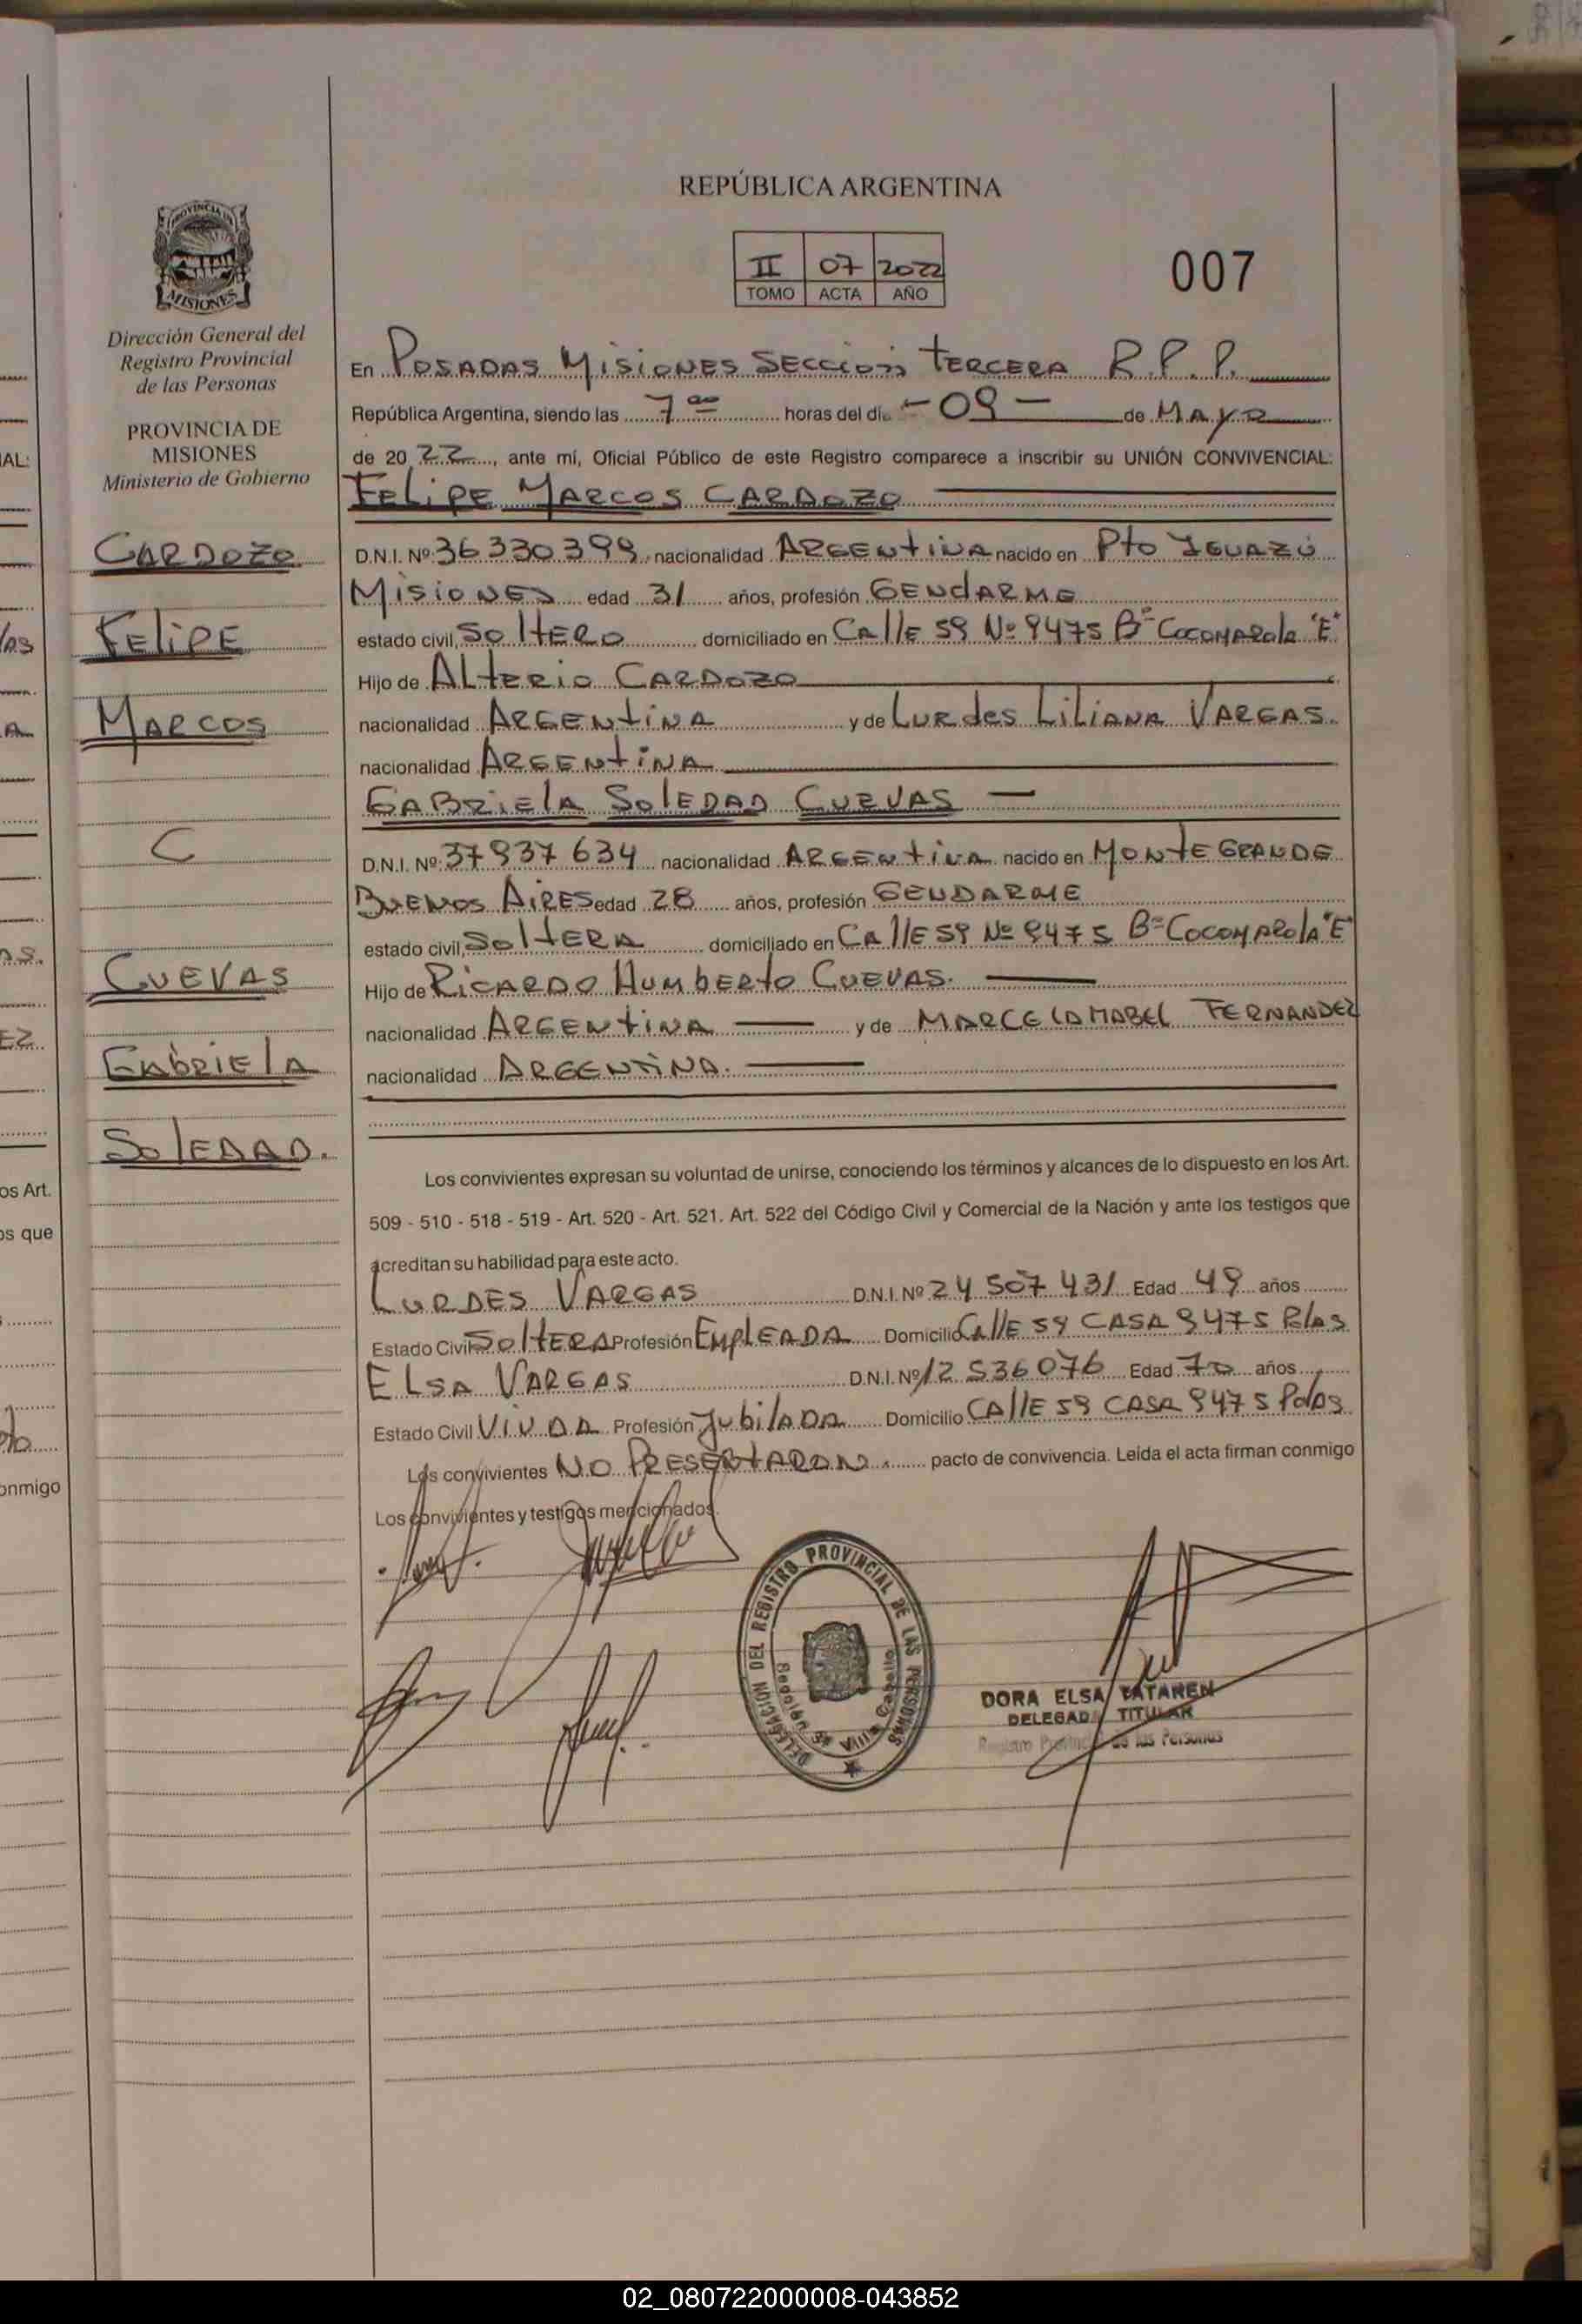 REPÚBLICA ARGENTINA
II 07 2022
TOMO ACTA AÑO
007
PROVINCIA DE
MISIONES
Dirección General del
Registro Provincial
de las Personas
PROVINCIA DE
MISIONES
Ministerio de Gobierno
CARDOZO
FELIPE
MARCOS
C
CUEVAS
GABRIELA
SOLEDAD.
En POSADAS MISIONES SECCION TERCERA R.P.P.
República Argentina, siendo las 7 00 horas del día - 09 - de MAYO
de 20 22, ante mí, Oficial Público de este Registro comparece a inscribir su UNIÓN CONVIVENCIAL:
FELIPE MARCOS CARDOZO
D.N.I. Nº 36 330 399 nacionalidad ARGENTINA nacido en Pto IGUAZÚ
MISIONES edad 31 años, profesión GENDARME
estado civil, SOLTERO domiciliado en CALLE 59 Nº 9475 Bº COCOMAROLA "E"
Hijo de ALTERIO CARDOZO
nacionalidad ARGENTINA y de LURDES LILIANA VARGAS.
nacionalidad ARGENTINA
GABRIELA SOLEDAD CUEVAS —
D.N.I. Nº 37 937 634 nacionalidad ARGENTINA nacido en MONTE GRANDE
BUENOS AIRES edad 28 años, profesión GENDARME
estado civil, SOLTERA domiciliado en CALLE 59 Nº 9475 Bº COCOMAROLA "E"
Hijo de RICARDO HUMBERTO CUEVAS.
nacionalidad ARGENTINA y de MARCELA MABEL FERNANDEZ
nacionalidad ARGENTINA.
Los convivientes expresan su voluntad de unirse, conociendo los términos y alcances de lo dispuesto en los Art.
509 - 510 - 518 - 519 - Art. 520 - Art. 521. Art. 522 del Código Civil y Comercial de la Nación y ante los testigos que
acreditan su habilidad para este acto.
LURDES VARGAS D.N.I. Nº 24 507 431 Edad 49 años
Estado Civil SOLTERA Profesión EMPLEADA Domicilio CALLE 59 CASA 9475 Pdas
ELSA VARGAS D.N.I. Nº 12 536 076 Edad 70 años
Estado Civil VIUDA Profesión JUBILADA Domicilio CALLE 59 CASA 9475 Pdas
Los convivientes NO PRESENTARON. pacto de convivencia. Leída el acta firman conmigo
Los convivientes y testigos mencionados.
DELEGACION DEL REGISTRO PROVINCIAL DE LAS PERSONAS
Villa Cabello
DORA ELSA TATAREN
DELEGADA TITULAR
Registro Provincial de las Personas
02_080722000008-043852